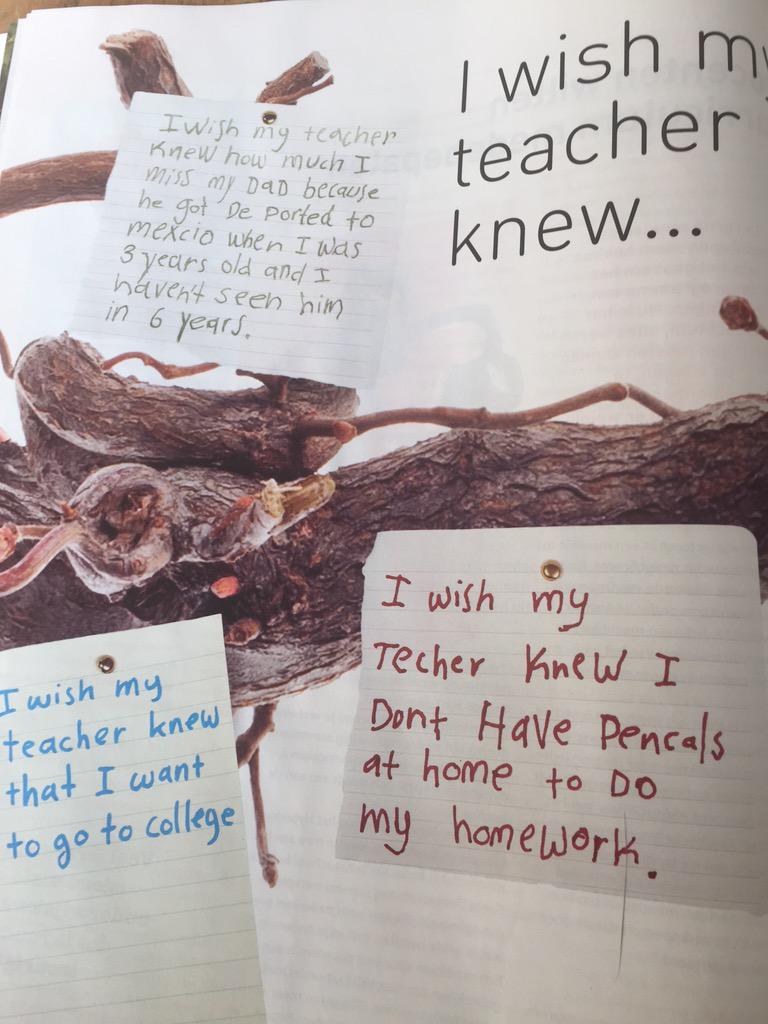 I wish my
teacher
knew...
I wish my teacher
knew how much I
miss my DaD because
he got De Ported to
mexcio when I was
3 years old and I
haven't seen him
in 6 years.
I wish my
Techer knew I
Dont Have Pencals
at home to Do
my homework.
I wish my
teacher knew
that I want
to go to college